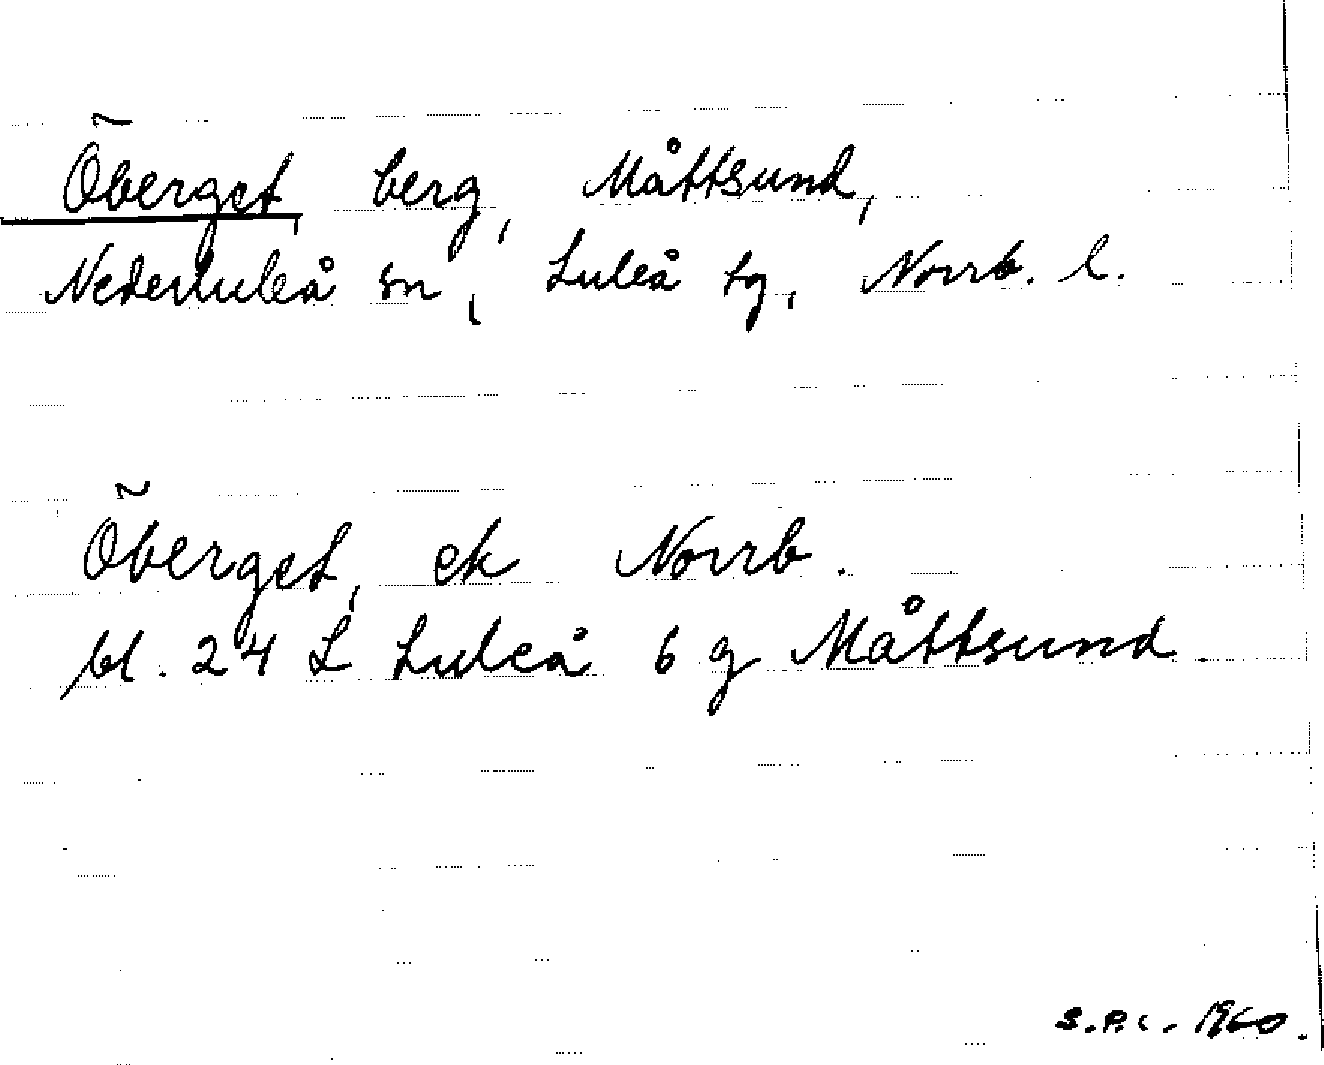 Öberget, berg, Måttsund,
Nederluleå sn, Luleå tg, Norrb. l.
Öberget, ek Norrb.
bl. 24 L Luleå 6 g Måttsund.
S.P.C. 1960.